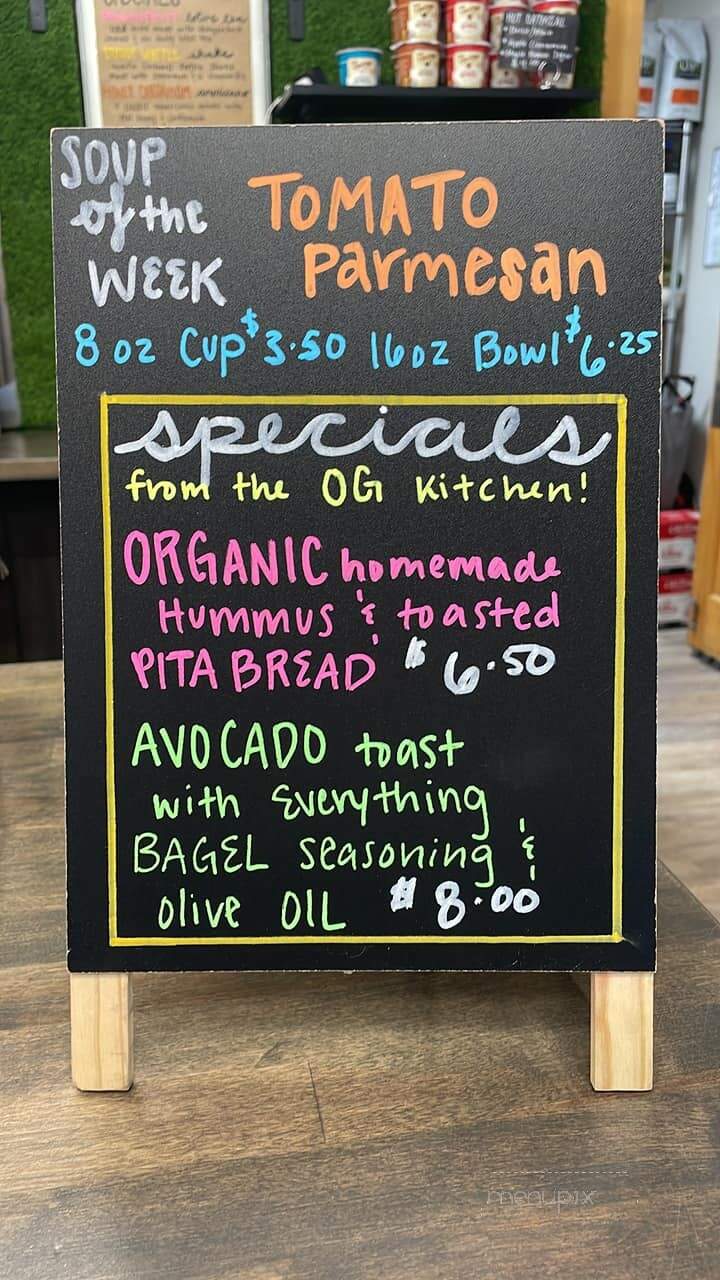 SOUP
of the
WEEK
TOMATO
Parmesan
8 oz Cup $3.50 16 oz Bowl $6.25
specials
from the OG Kitchen!
ORGANIC homemade
Hummus & toasted
PITA BREAD $6.50
AVOCADO toast
with Everything
BAGEL seasoning &
olive OIL $8.00
HOT OATMEAL
menupix